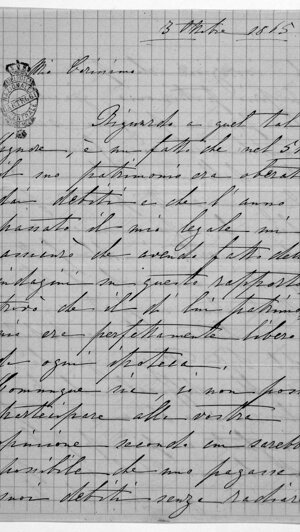 3 Ottobre 1885
Mio Carissimo
Riguardo a quel tal
signore, è un fatto che nel 5
il suo patrimonio era oberat
da debiti e che l'anno
passato il mio legale mi
assicurò che avendo fatto dell
indagini in questo rapporto
trovò che il di lui patrimo
nio era perfettamente libero
da ogni ipoteca.
Comunque sia, io non poss
partecipare alla vostra
opinione secondo cui sarebb
possibile che uno pagasse
suoi debiti senza radiar